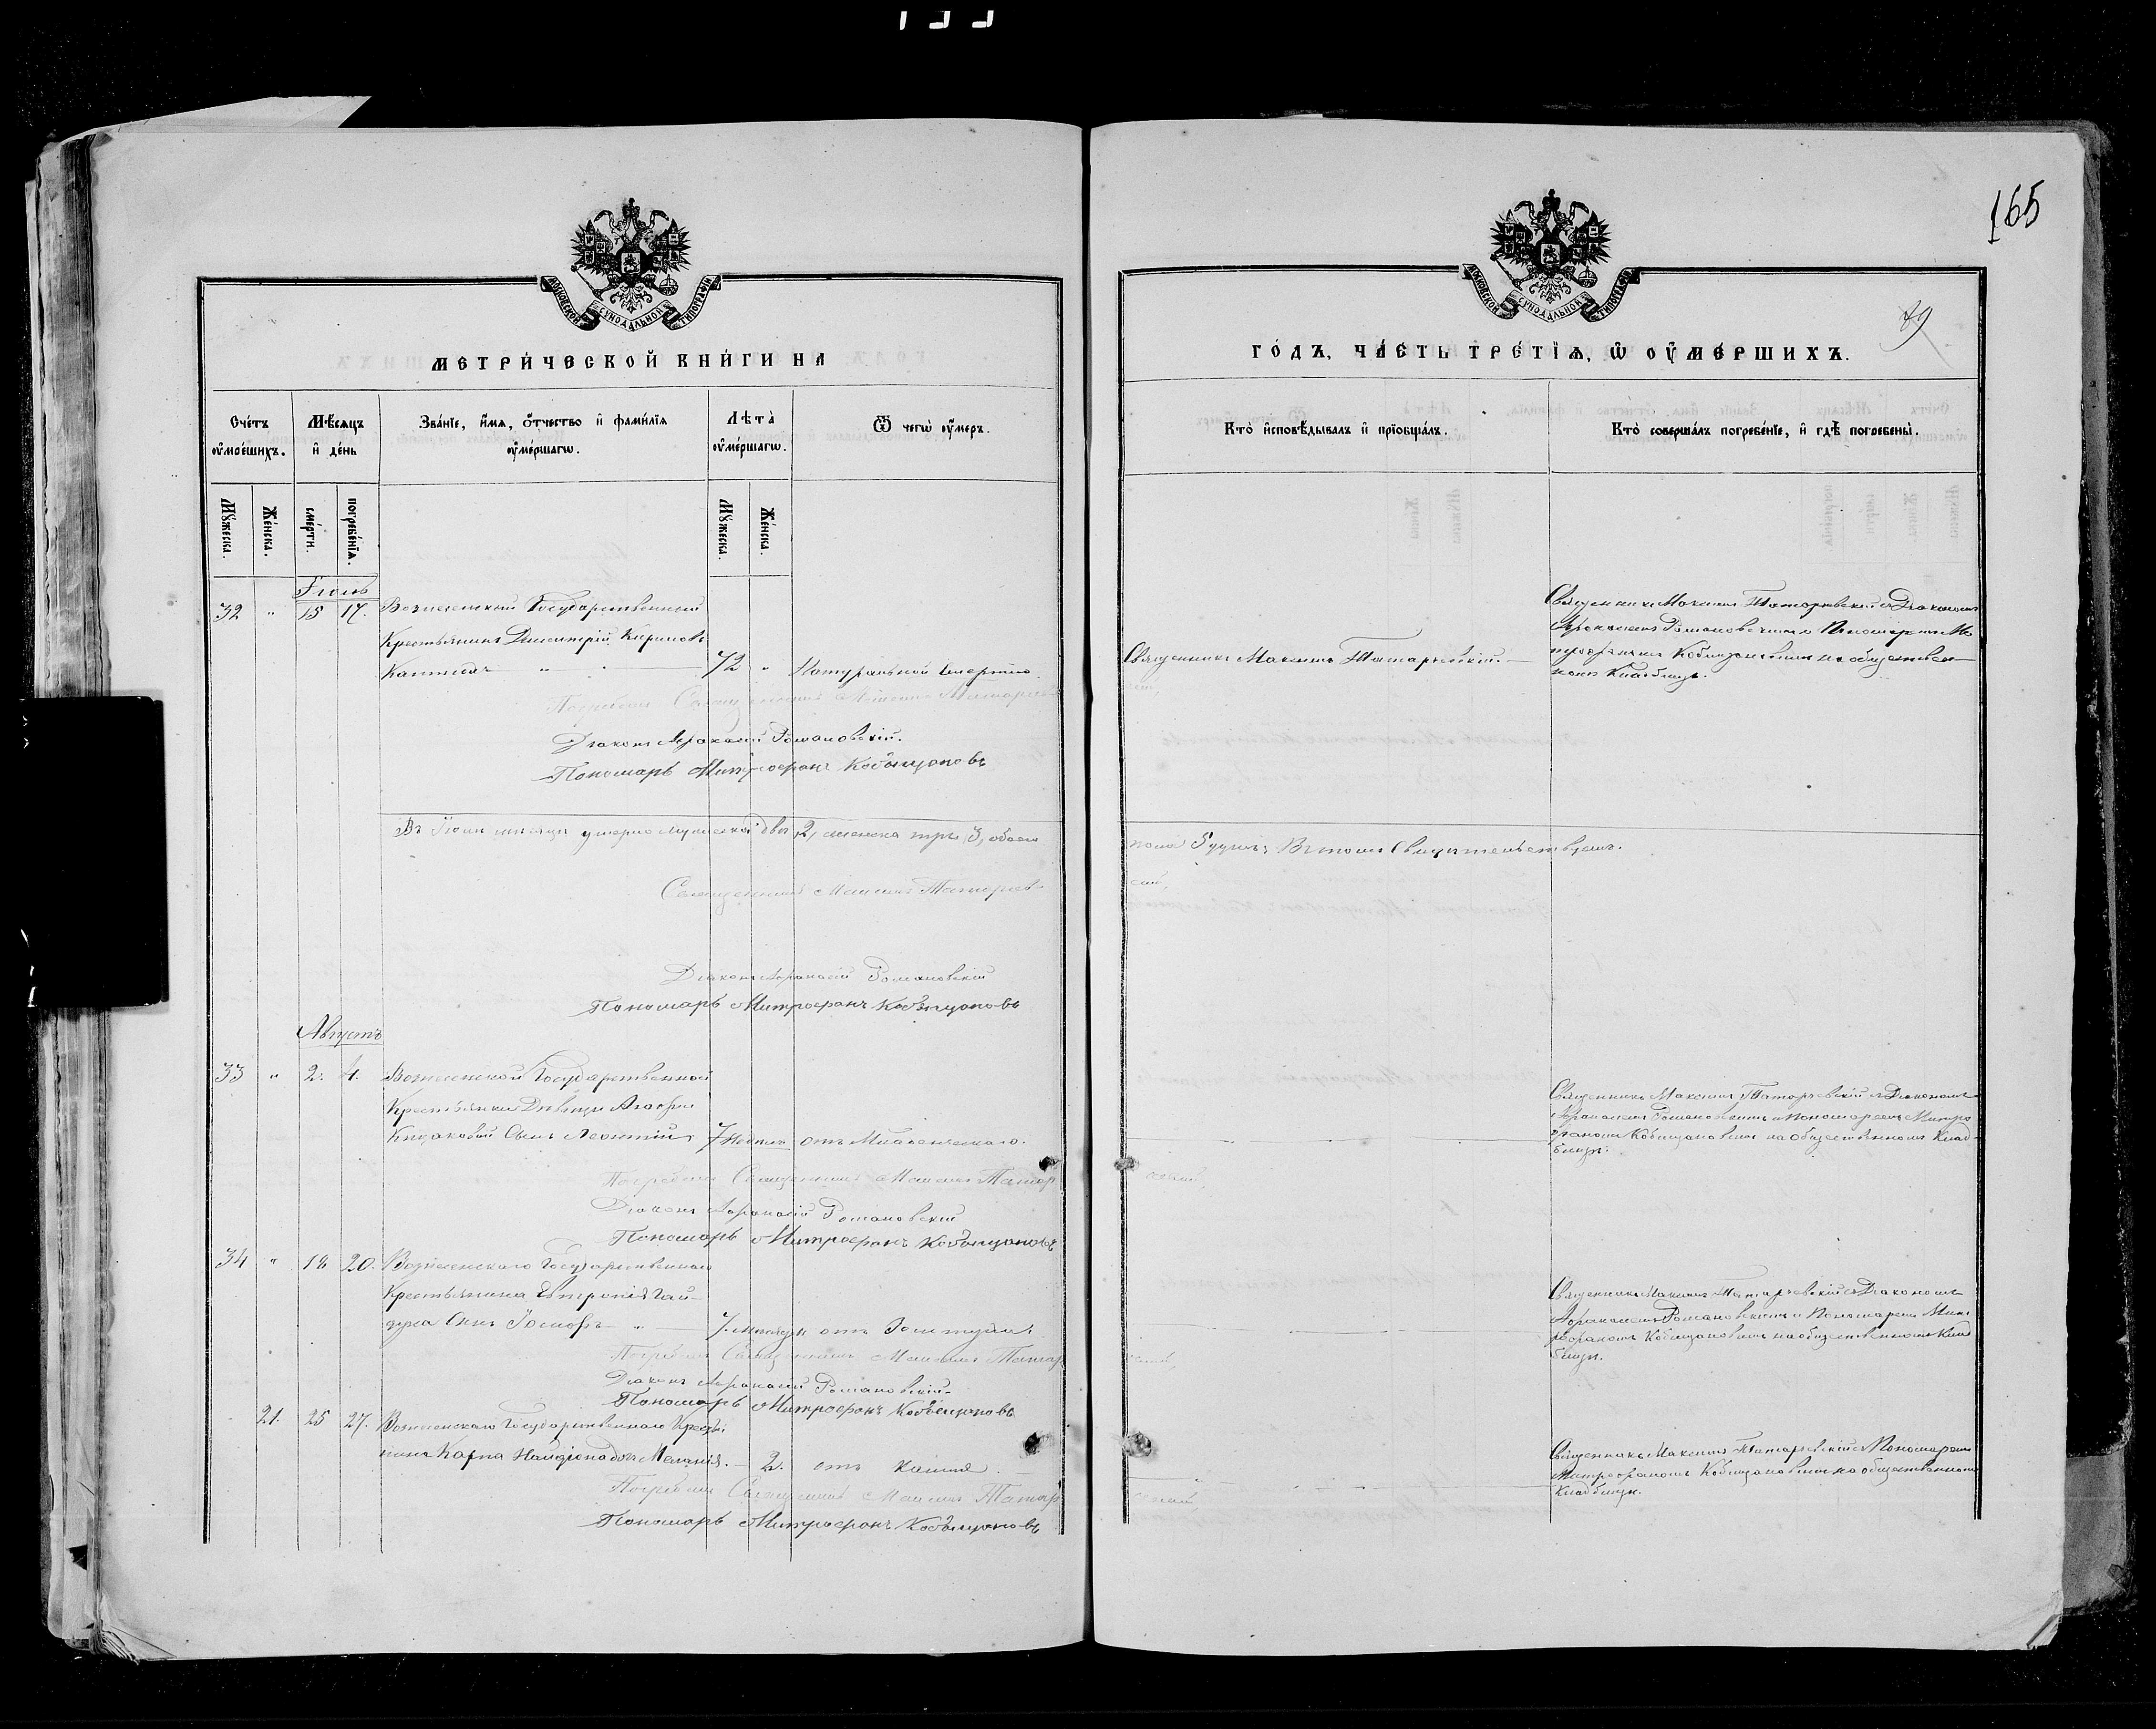 165
89
МОСКОВСКОЙ СУНОДАЛЬНОЙ ТИПОГРАФІИ
МЕТРИ́ЧЕСКОЙ КНИ́ГИ НА
МОСКОВСКОЙ СУНОДАЛЬНОЙ ТИПОГРАФІИ
ГО́ДЪ, ЧА́СТЬ ТРЕ́ТІѦ, Ѡ҆ ОУ҆МЕ́РШИХЪ.
Сче́тъ оу҆ме́ршихъ.
Мѣ́сяцъ и҆ де́нь
Зва́нїе, и҆́мѧ, ѻ҆́тчество и҆ фами́лїѧ оу҆ме́ршагѡ.
Лѣта̀ оу҆ме́ршагѡ.
Ѿ чегѡ̀ оу҆́меръ.
Кто̀ и҆сповѣ́дывалъ и҆ прїѡбща́лъ.
Кто̀ соверша́лъ погребе́нїе, и҆ гдѣ̀ погребены̀.
Мꙋ́жеска.
Же́нска.
сме́рти.
погребе́нїѧ.
Мꙋ́жеска.
Же́нска.
Іюль
32 " 15 17. Вознесенскій Государственный
Крестьянинъ Димитрій Кириловъ
72 " Натуральной смертію.
Священникъ Максимъ Татаревскій.
Священникъ Максимъ Татаревскій съ Діакономъ
Афанасіемъ Романовскимъ и Пономаремъ Ми
трофаномъ Кобыщановымъ на обществен
номъ Кладбищѣ.
Погребали Священникъ Максимъ Татарев
Діаконъ Афанасій Романовскій.
Пономарь Митрофанъ Кобыщановъ
Въ мѣсяцѣ умерло мужеска два 2, женска три 3, обоего
пола 5 душъ. Въ томъ Свидѣтельствуемъ.
Священникъ Максимъ Татарев
скій,
Діаконъ Афанасій Романовскій
Пономарь Митрофанъ Кобыщановъ
Августъ
33 " 2. 4. Вознесенской Государственной
Крестьянки Дѣвицы Агафіи
Сынъ Леонтій 7 Недѣль отъ Младенческаго.
Священникъ Максимъ Татаревскій съ Діакономъ
Афанасіемъ Романовскимъ и Пономаремъ Митро
фаномъ Кобыщановымъ на Общественномъ Клад
бищѣ.
Погребали Священникъ Максимъ Татар
евскій,
Діаконъ Афанасій Романовскій
Пономарь Митрофанъ Кобыщановъ
34 " 18 20. Вознесенскаго Государственнаго
Крестьянина Евтропія Гай
дука Сынъ Іосифъ " 7. мѣсяцъ отъ
Священникъ Максимъ Татаревскій съ Діакономъ
Афанасіемъ Романовскимъ и Пономаремъ Мит
рофаномъ Кобыщановымъ на общественномъ Клад
бищѣ.
Погребали Священникъ Максимъ Татар
Діаконъ Афанасій Романовскій.
Пономарь Митрофанъ Кобыщановъ
21. 25 27. Вознесенскаго Государственнаго Кресть
янина Карпа дочь Меланія. 2. отъ кашля.
Священникъ Максимъ Татаревскій съ Пономаремъ
Митрофаномъ Кобыщановымъ на общественномъ
Кладбищѣ.
Погребали Священникъ Максимъ Татар
Пономарь Митрофанъ Кобыщановъ